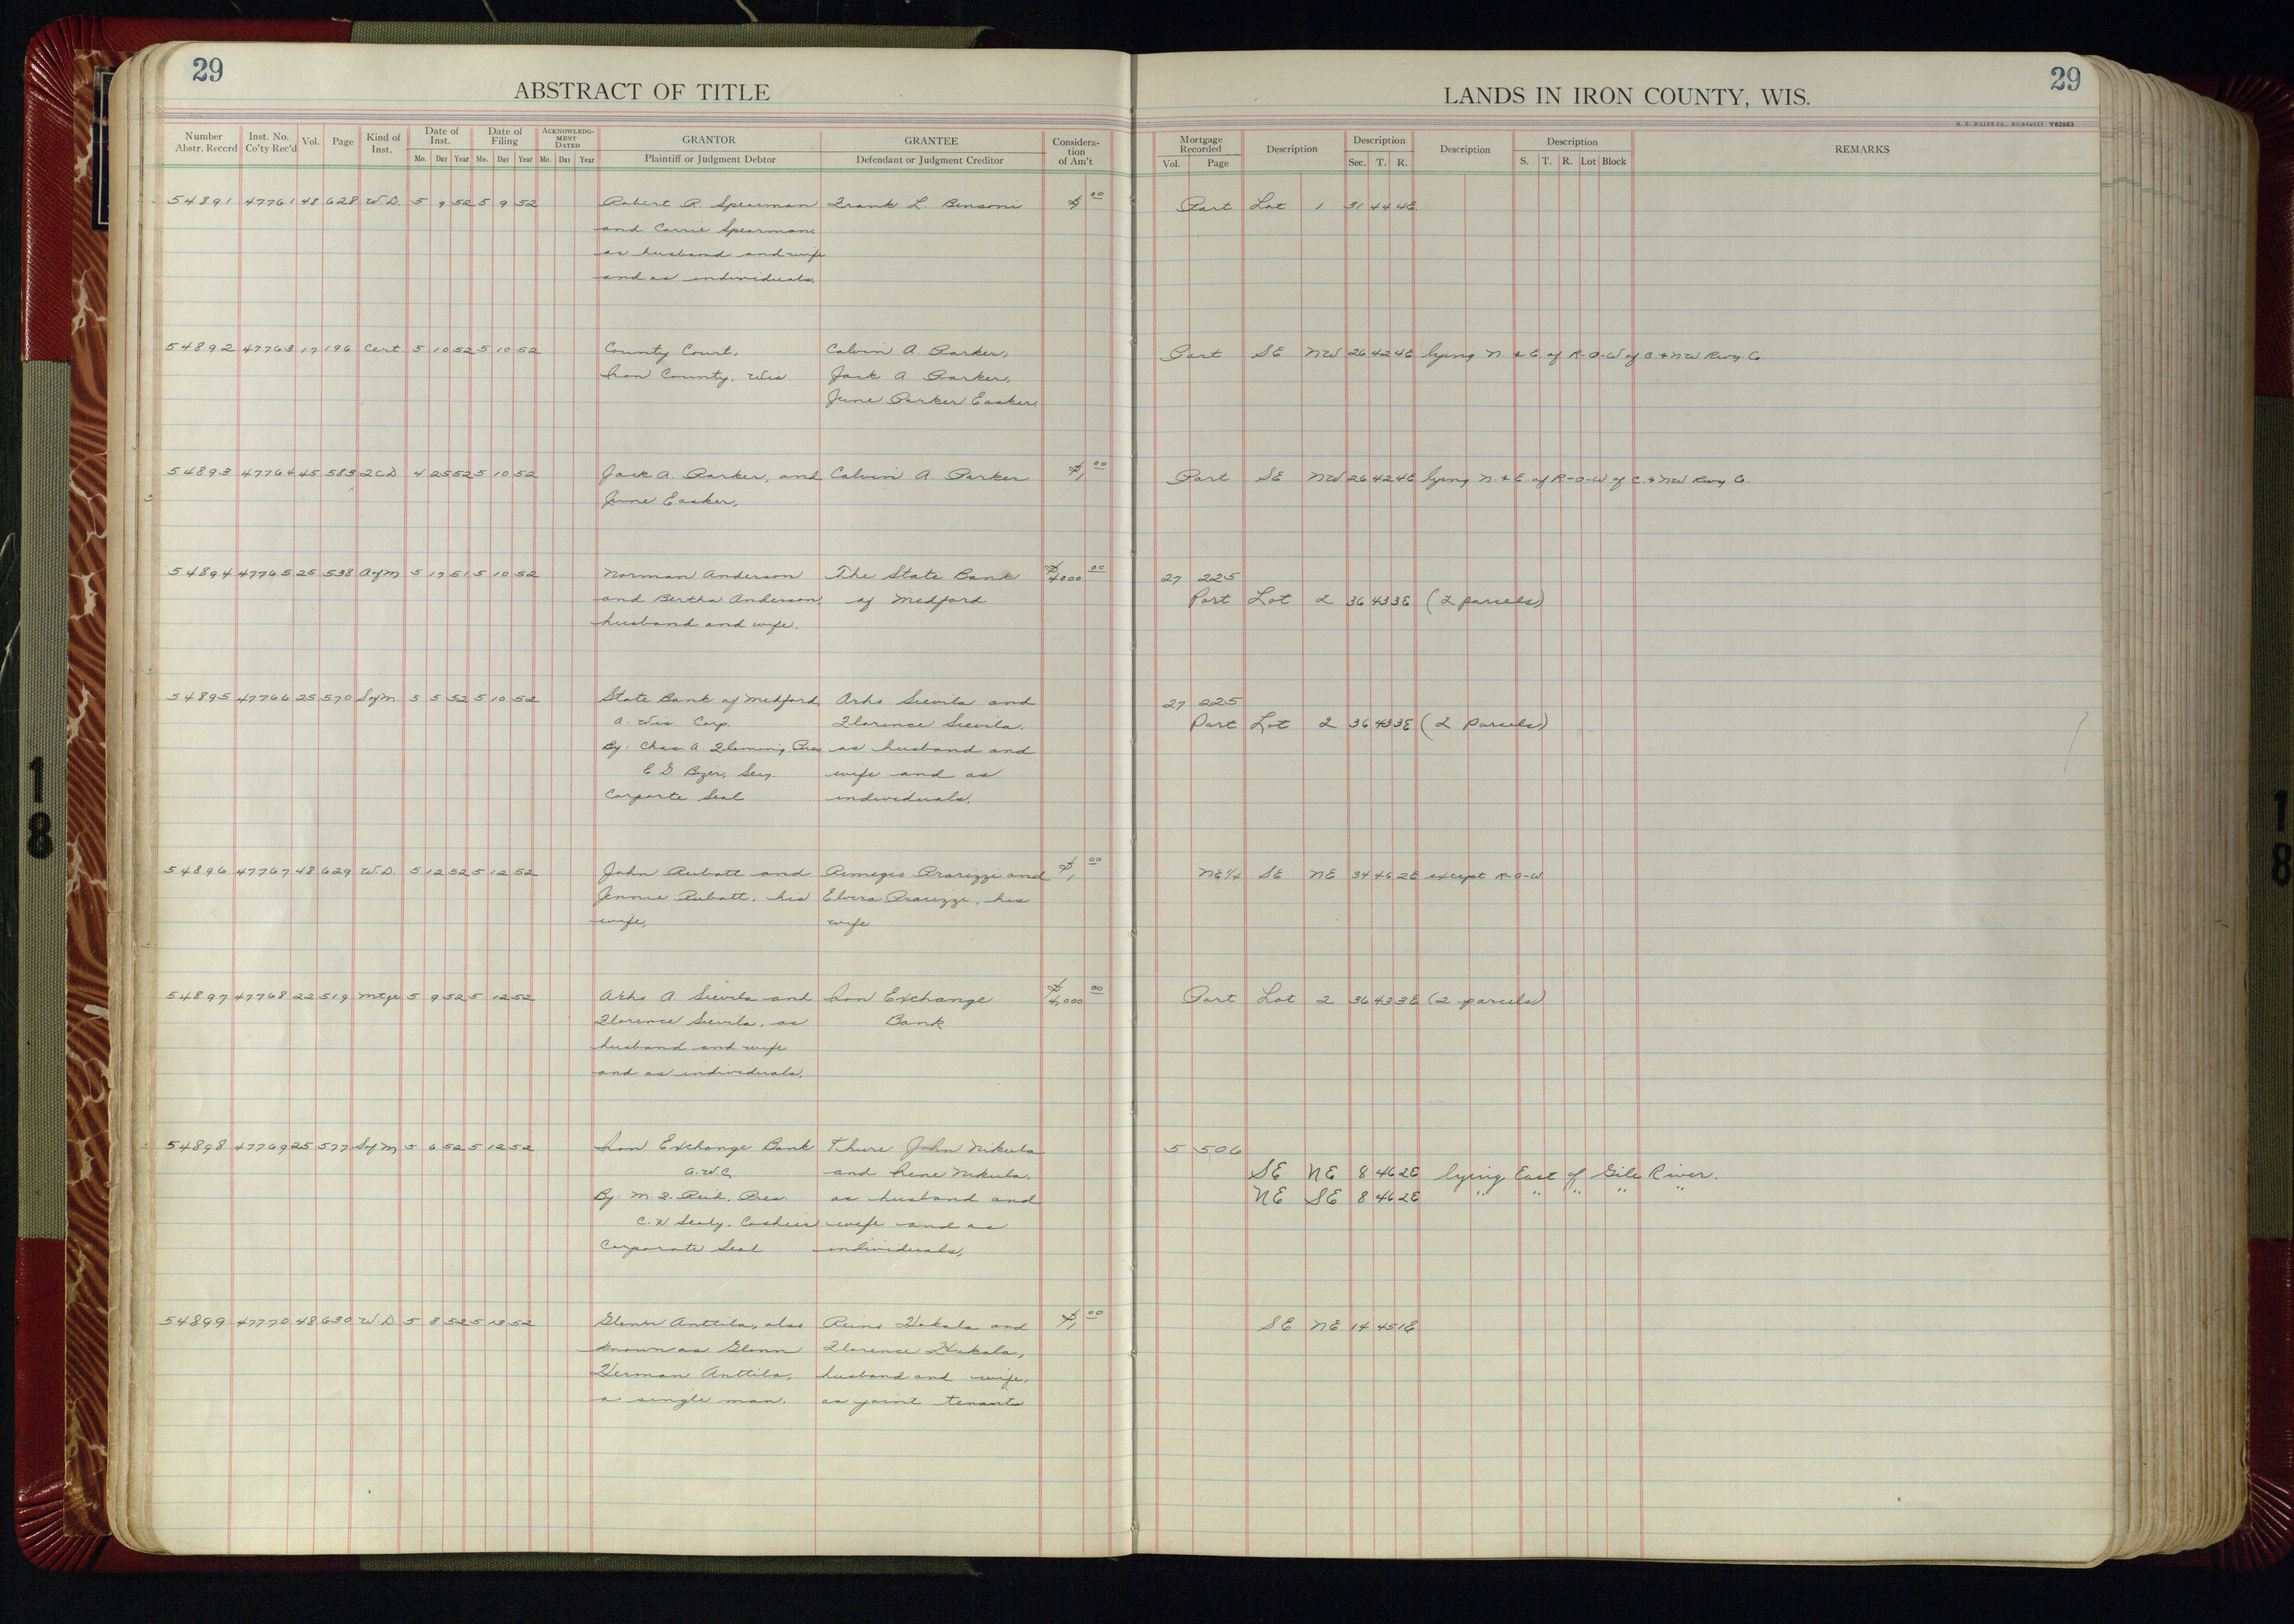 29
ABSTRACT OF TITLE
LANDS IN IRON COUNTY, WIS.
29
H. C. MILLER CO., MILWAUKEE Y62963
Number Abstr. Record Inst. No. Co'ty Rec'd Vol. Page Kind of Inst. Date of Inst. Mo. Day Year Date of Filing Mo. Day Year ACKNOWLEDGMENT DATED Mo. Day Year GRANTOR Plaintiff or Judgment Debtor GRANTEE Defendant or Judgment Creditor Consideration of Am't
Mortgage Recorded Vol. Page Description Description Sec. T. R. Description Description S. T. R. Lot Block REMARKS
54891 47761 48 628 W.D. 5 9 52 5 9 52 Robert R. Spearman Frank L. Bensoni $ 00 Part Lot 1 31 44 4E
and Carrie Spearman,
as husband and wife
and as individuals,
54892 47763 17 196 Cert 5 10 52 5 10 52 County Court, Calvin A Parker, Part SE NW 26 42 4E lying N. & E. of R-O-W of C & NW Rwy. Co.
Iron County, Wis Jack A Parker,
June Parker Easker
54893 47764 45 583 2CD 4 25 52 5 10 52 Jack A. Parker, and Calvin A Parker $1 00 Part SE NW 26 42 4E lying N. & E. of R-O-W of C. & NW Rwy Co.
June Easker,
54894 47765 25 538 AofM 5 17 51 5 10 52 Norman Anderson The State Bank $4000 00 27 225
and Bertha Anderson, of Medford Part Lot 2 36 43 3E (2 parcels)
husband and wife.
54895 47766 25 570 SofM. 5 5 52 5 10 52 State Bank of Medford Arho Sievila and 27 225
a. Wis. Corp. Florence Sievila. Part Lot 2 36 43 3E (2 parcels)
By: Chas. A. Fleming, Pres as husband and
E G Byer, Secy. wife and as
Corporte Seal individuals.
54896 47767 48 629 W.D. 5 12 52 5 12 52 John Aubatt and Remegio Prarizzi and $1 00 NE¼ SE NE 34 46 2E except R-O-W
Jennie Aubatt, his Elvira Prarizzi, his
wife, wife
54897 47768 22 519 Mtge 5 9 52 5 12 52 Arho A Sievila and Iron Exchange $4,000 00 Part Lot 2 36 43 3E (2 parcels)
Florence Sievila, as Bank
husband and wife
and as individuals.
54898 47769 25 577 SofM 5 6 52 5 12 52 Iron Exchange Bank Thure John Nikula 5 506
a.W.C. and Irene Nikula, SE NE 8 46 2E lying East of Gile River.
By: M. F. Reid, Pres. as husband and NE SE 8 46 2E " " " " "
C. H Sealy, Cashier wife and as
Corporate Seal individuals,
54899 47770 48 630 W.D. 5 8 52 5 13 52 Glenn Anttila, also Reino Hakala and $1 00 SE NE 14 45 1E
known as Glenn Florence Hakala,
Herman Anttila, husband and wife,
a single man. as joint tenants
18
18